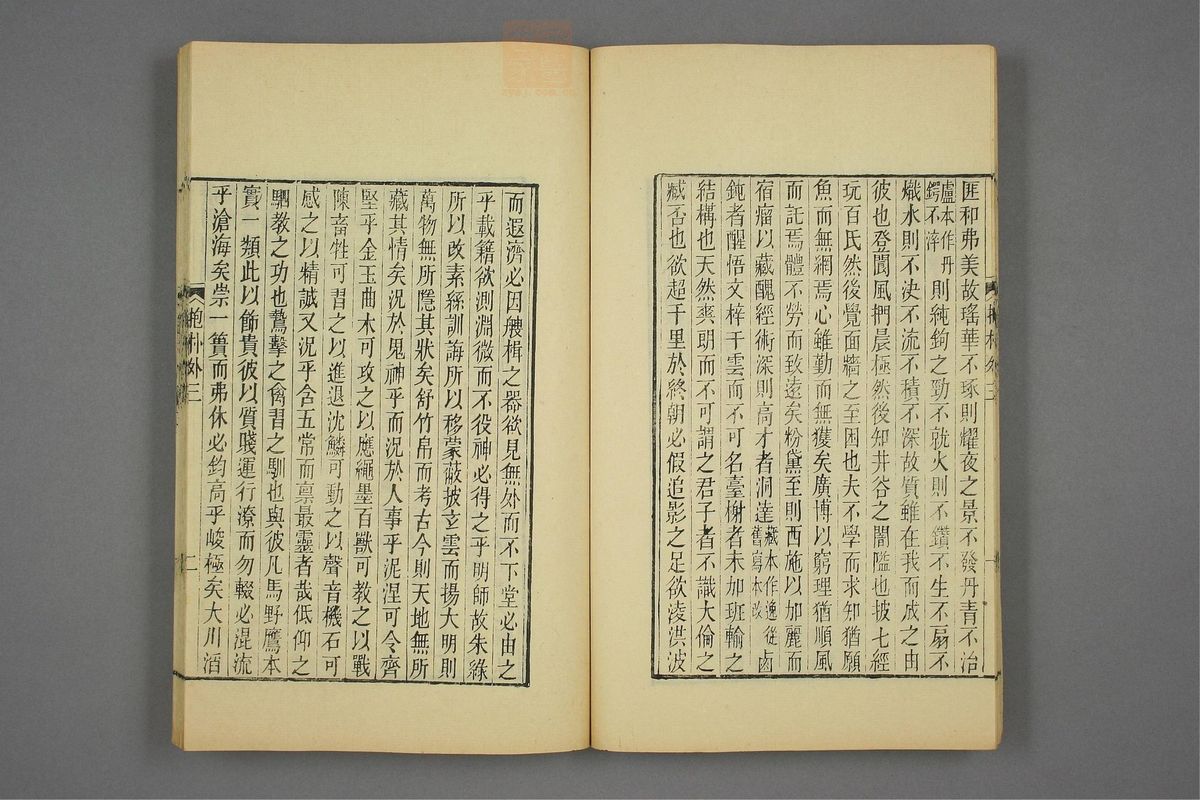 匪和弗美故瑤華不琢則耀夜之景不發丹青不治
盧本作丹
鍔不淬
則純鉤之勁不就火則不鑽不生不扇不
熾水則不決不流不積不深故質雖在我而成之由
彼也登閬風捫晨極然後知井谷之闇隘也披七經
玩百氏然後覺面牆之至困也夫不學而求知猶願
魚而無網焉心雖勤而無獲矣廣博以窮理猶順風
而託焉體不勞而致遠矣粉黛至則西施以加麗而
宿瘤以藏醜經術深則高才者洞達
藏本作逸從
舊寫本改
鹵
鈍者醒悟文梓干雲而不可名臺榭者未加班輸之
結構也天然爽朗而不可謂之君子者不識大倫之
臧否也欲超千里於終朝必假追影之足欲淩洪波
抱朴外三
一
而遐濟必因艘楫之器欲見無外而不下堂必由之
乎載籍欲測淵微而不役神必得之乎明師故朱綠
所以改素絲訓誨所以移蒙蔽披玄雲而揚大明則
萬物無所隱其狀矣舒竹帛而考古今則天地無所
藏其情矣況於鬼神乎而況於人事乎泥涅可令齊
堅乎金玉曲木可攻之以應繩墨百獸可教之以戰
陳畜牲可習之以進退沈鱗可動之以聲音機石可
感之以精誠又況乎含五常而稟最靈者哉低仰之
駟教之功也鷙擊之禽習之馴也與彼凡馬野鷹本
實一類此以飾貴彼以質賤運行潦而勿輟必混流
乎滄海矣崇一簣而弗休必鈞高乎峻極矣大川滔
抱朴外三
二